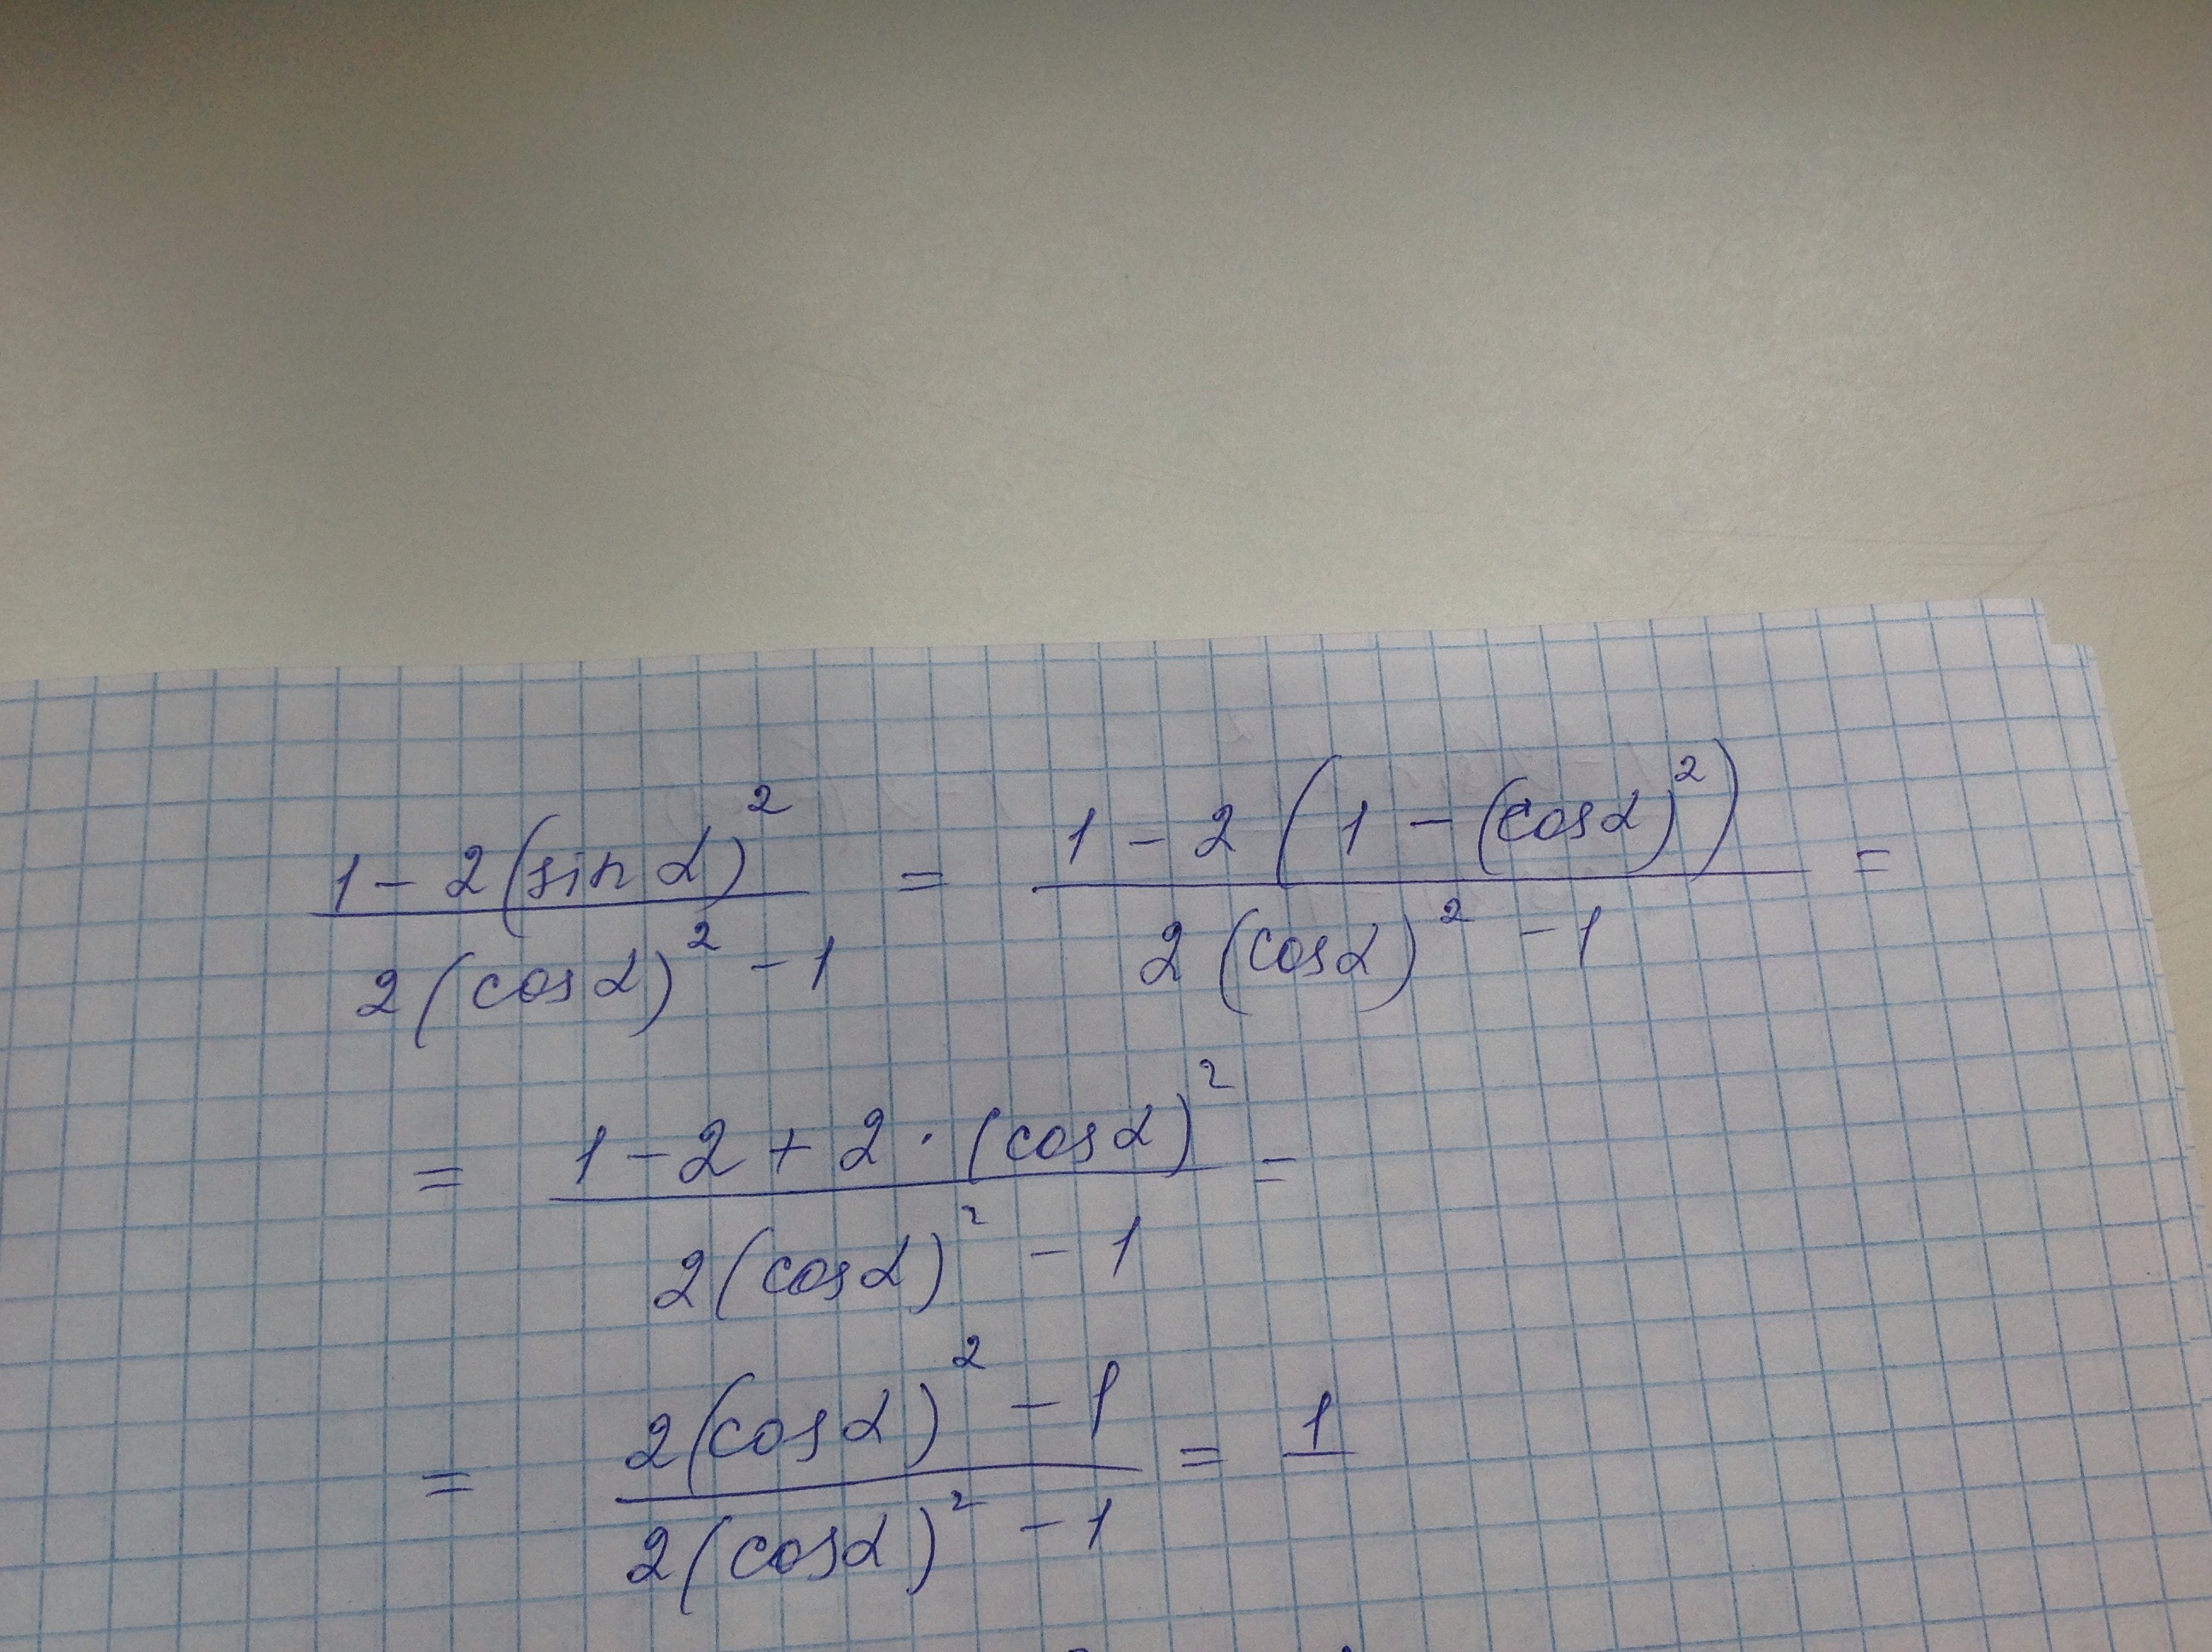 (1 - 2(sin α)²)/(2(cos α)² - 1) = (1 - 2(1 - (cos α)²))/(2(cos α)² - 1) =
= (1 - 2 + 2 · (cos α)²)/(2(cos α)² - 1) =
= (2(cos α)² - 1)/(2(cos α)² - 1) = 1